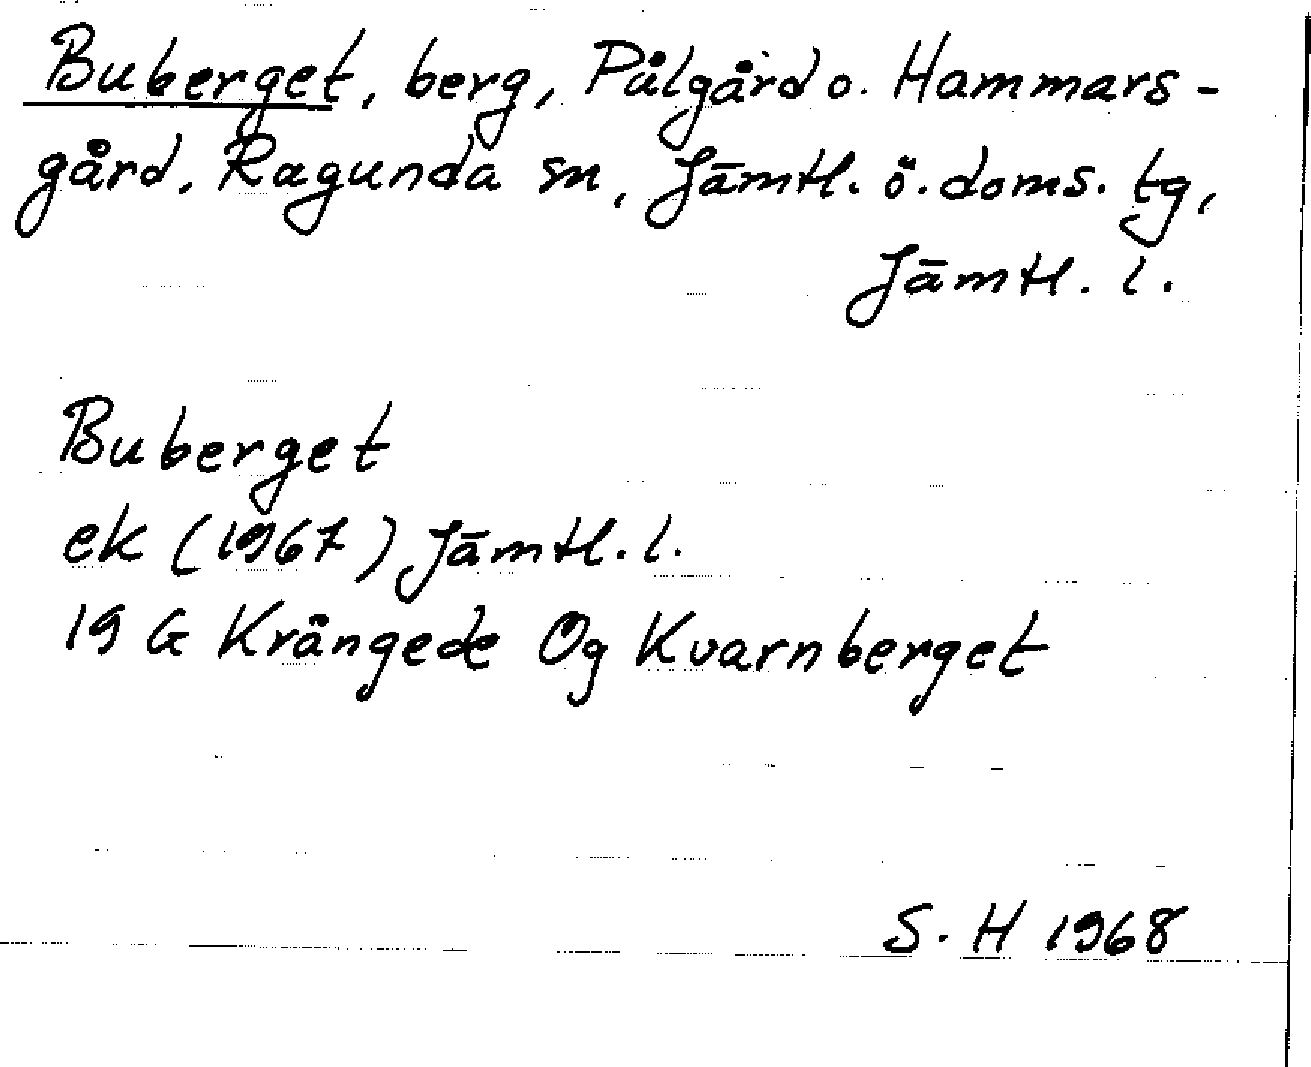 Buberget, berg, Pålgård o. Hammars-
gård, Ragunda sn, Jämtl. ö. doms. tg,
Jämtl. l.
Buberget
ek (1967) Jämtl. l.
19 G Krångede Og Kvarnberget
S. H 1968